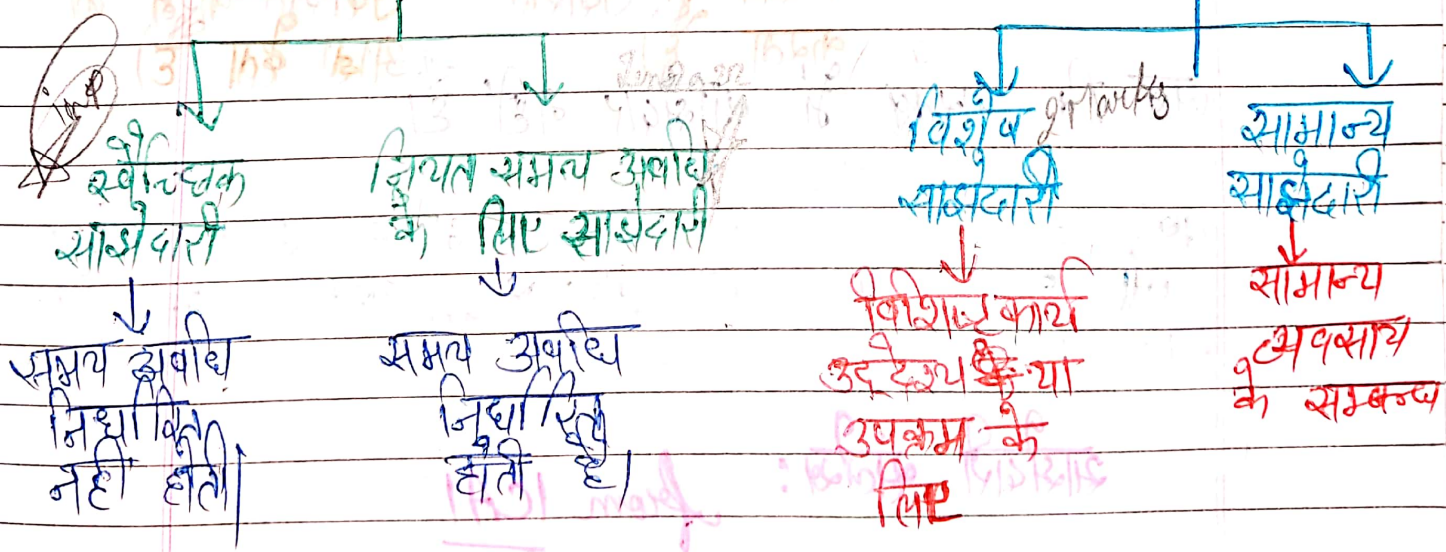 imp
स्वैच्छिक
साझेदारी
समय अवधि
निर्धारित
नहीं होती।
नियत समय अवधि
के लिए साझेदारी
समय अवधि
निर्धारित
होती है।
विशेष
साझेदारी
विशिष्ट कार्य
उद्देश्य के या
उपक्रम के
लिए
सामान्य
साझेदारी
सामान्य
व्यवसाय
के सम्बन्ध